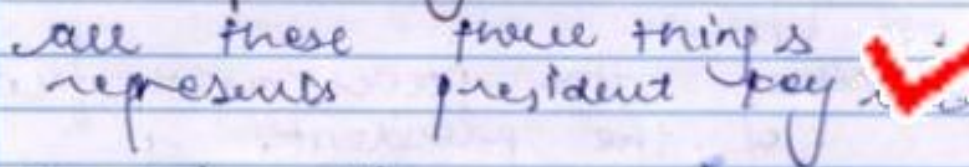 all these three things
represents president key